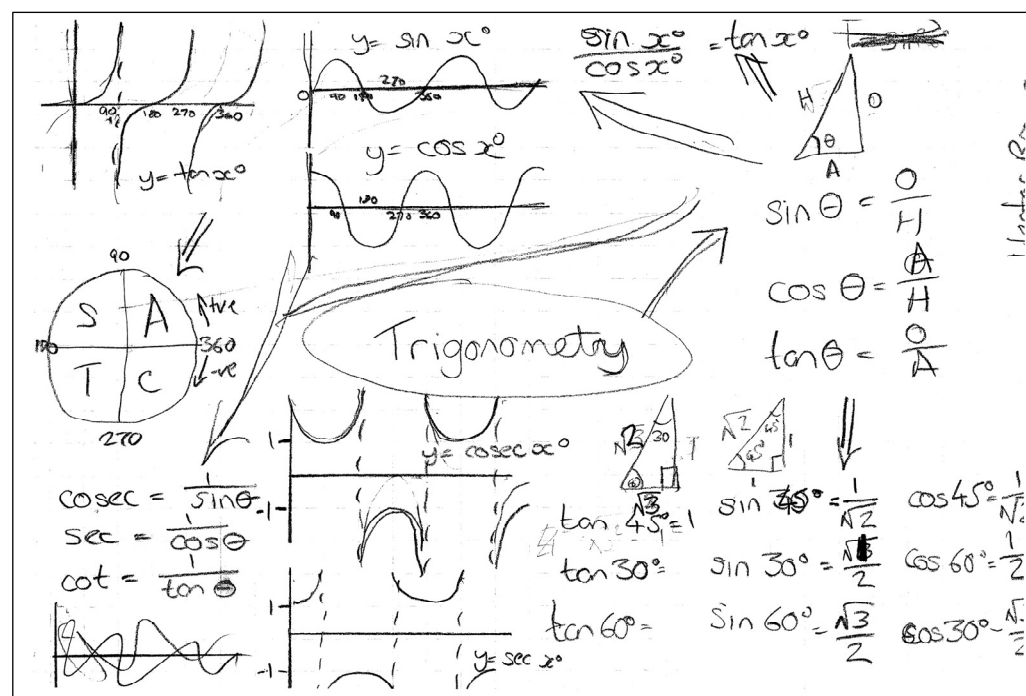 y = tan x°
90
180
270
360
y = sin x°
0
90
180
270
360
y = cos x°
90
180
270
360
sin x°/cos x° = tan x°
H
O
θ
A
sin θ = O/H
cos θ = A/H
tan θ = O/A
90
S
A
T
C
180
360
270
+ve
-ve
Trigonometry
cosec = 1/sin θ
sec = 1/cos θ
cot = 1/tan θ
1
-1
y = cosec x°
1
-1
y = sec x°
2
30
√3
√2
45°
45°
1
1
tan 45° = 1
tan 30° =
tan 60° =
sin 45° = 1/√2
sin 30° = /2
sin 60° = √3/2
cos 45° = 1/√2
cos 60° = 1/2
cos 30° =